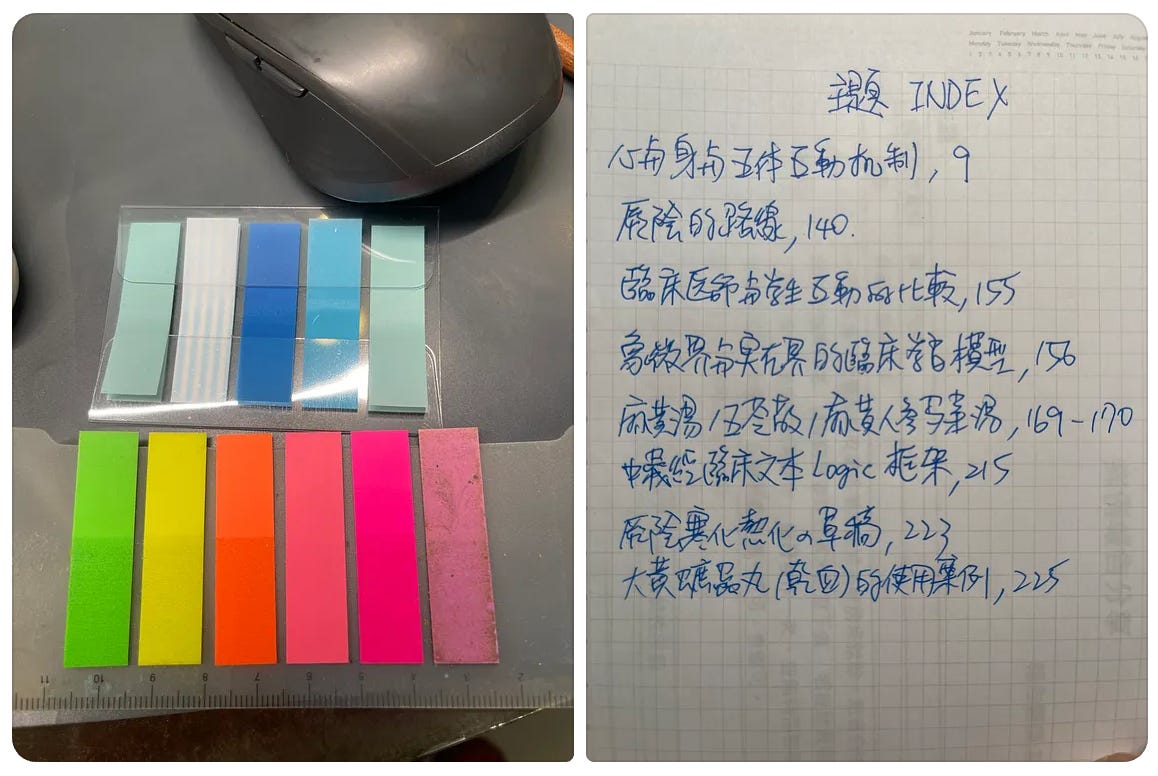 11 10 9 8 7 6 5 4 3 2
January February March April May June July August
Monday Tuesday Wednesday Thursday Friday Saturday
1 2 3 4 5 6 7 8 9 10 11 12 13 14 15 16
主題 INDEX
心与身与五体互動机制, 9
厥陰的路線, 140.
臨床医師与学生互動的比較, 155
界与実在界的臨床学習模型, 156
麻黄湯/五苓散/麻黄人参芍薬湯, 169-170
中義経臨床文本Logic框架, 215
厥陰寒化熱化の草稿, 223
大黄䗪虫丸(乾血)的使用案例, 225